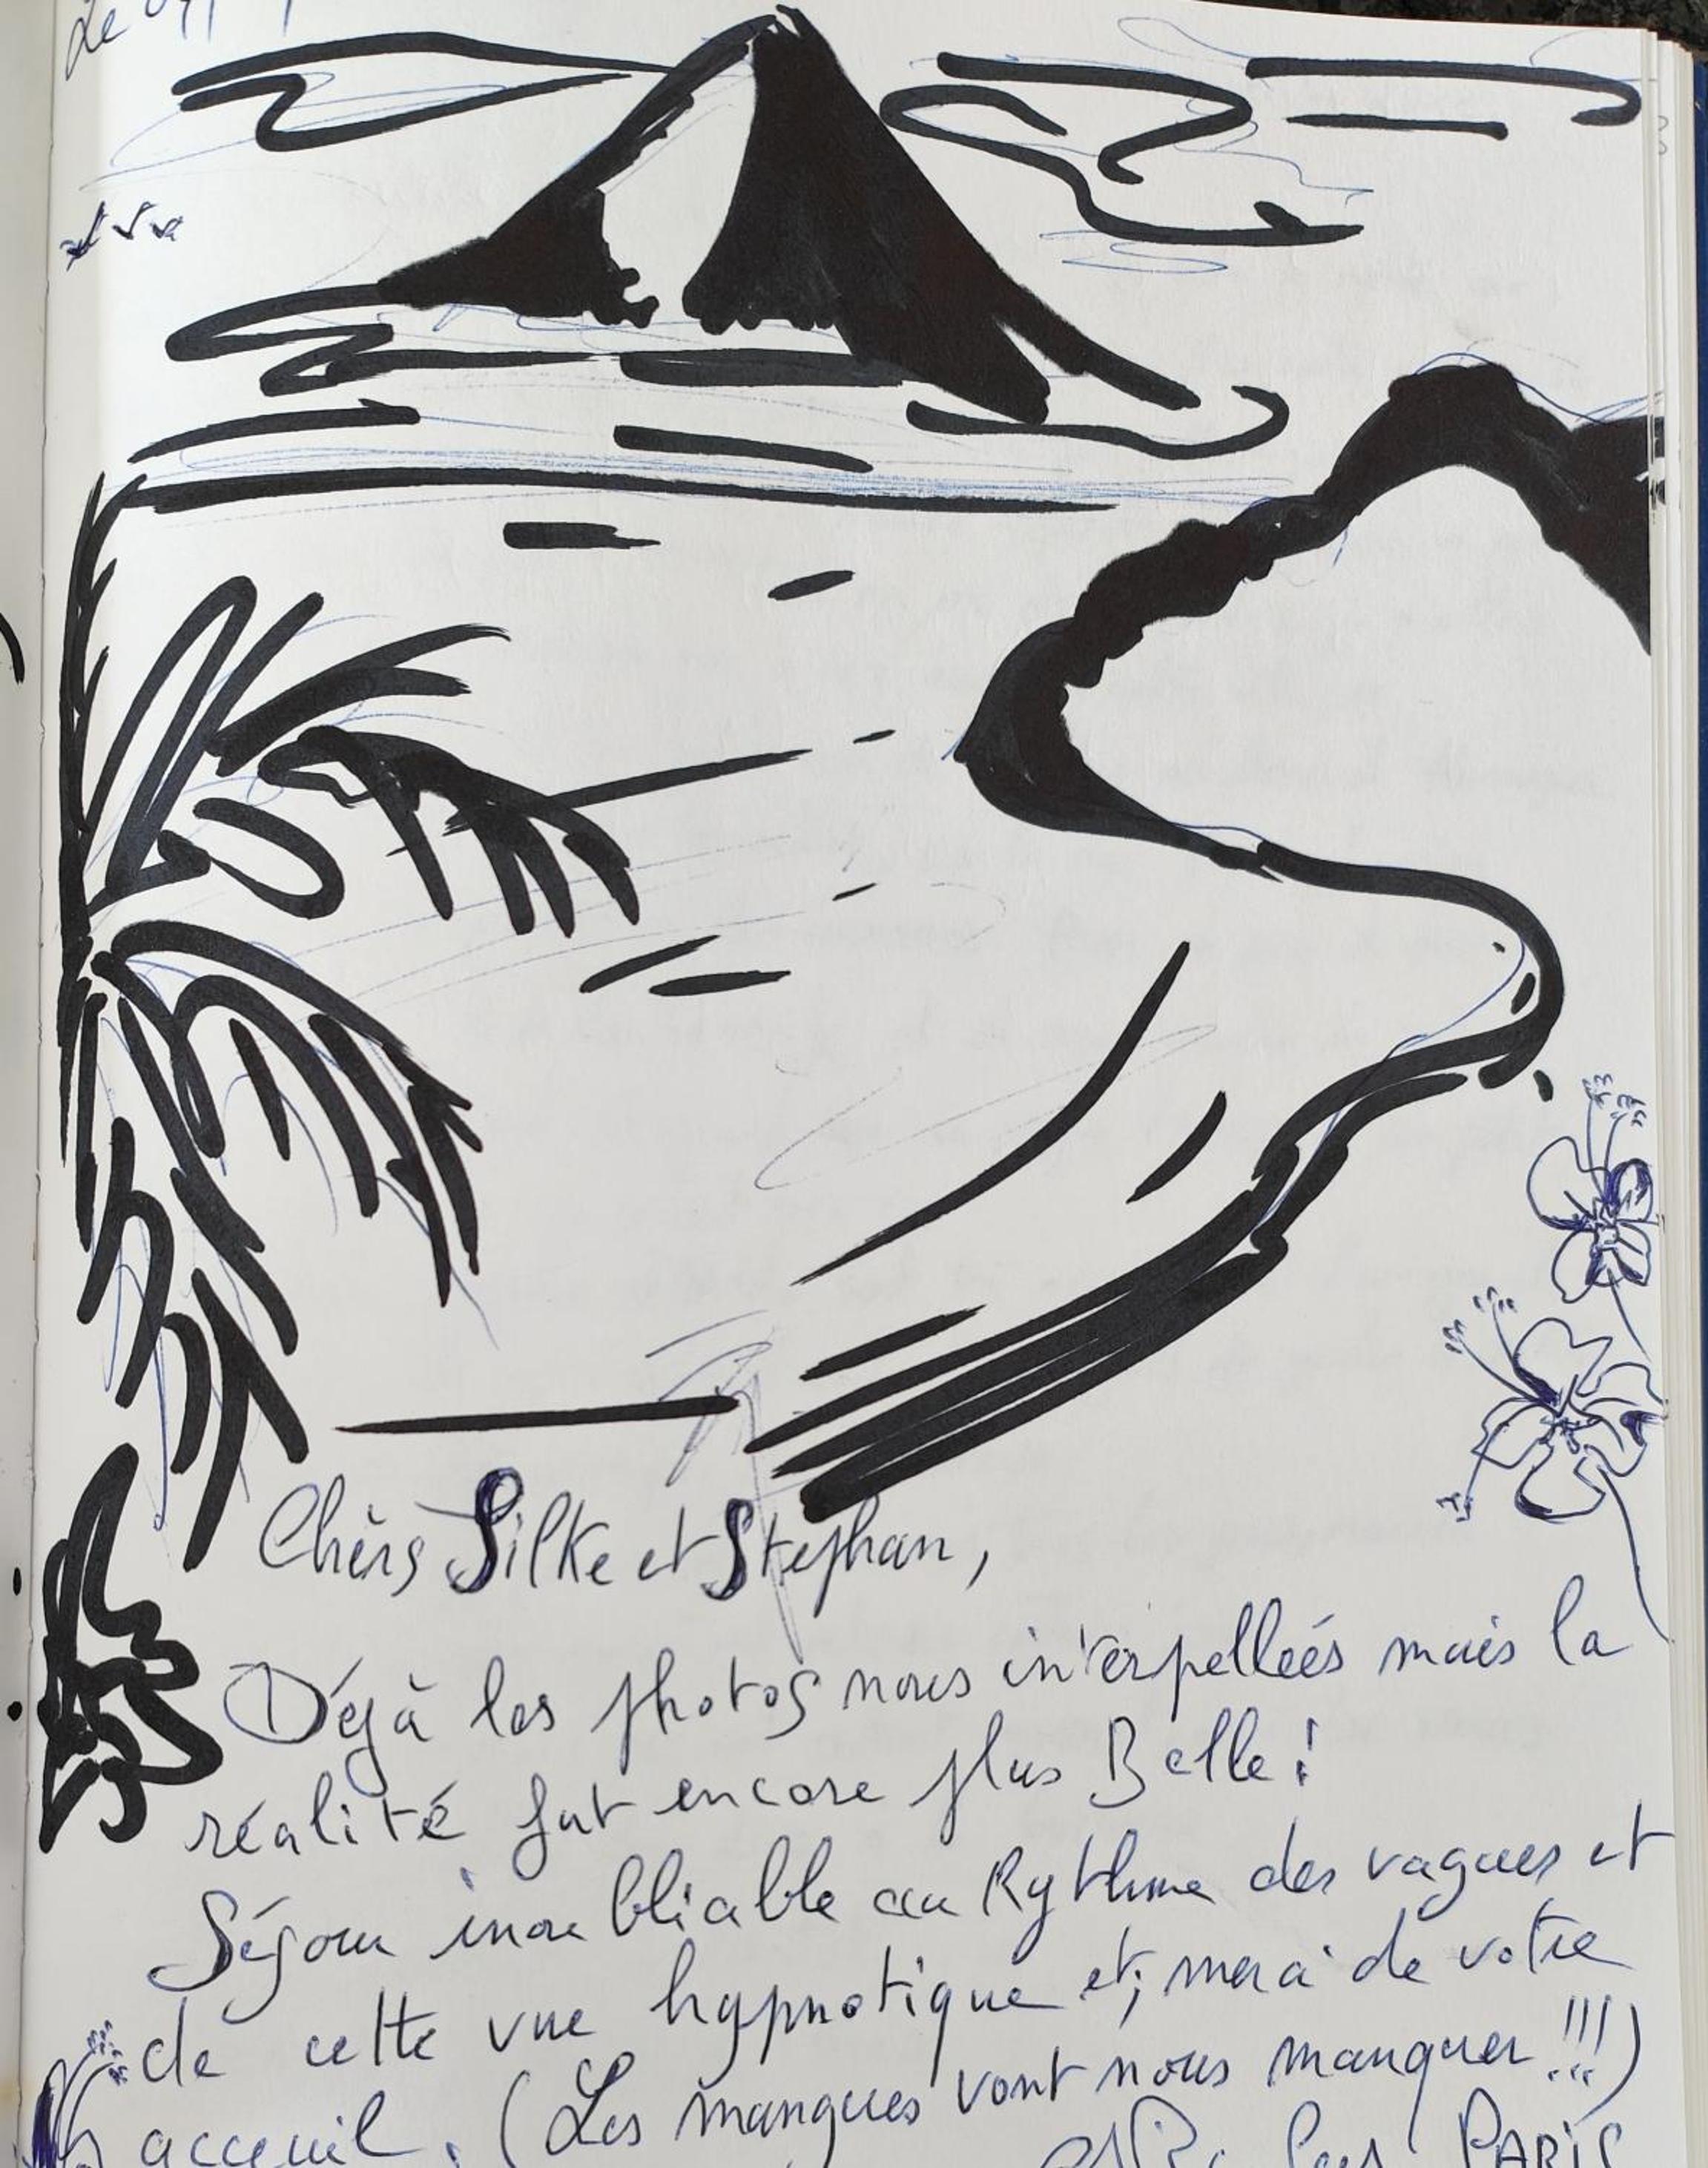 Le
Chèrs Silke et Stephan,
Déjà les photos nous interpelleés mais la
réalité fut encore plus Belle !
Séjour inoubliable au Rythme des vagues et
de cette vue hypnotique et, merci de votre
acceuil. (Les mangues vont nous manquer !!!)
PARIS